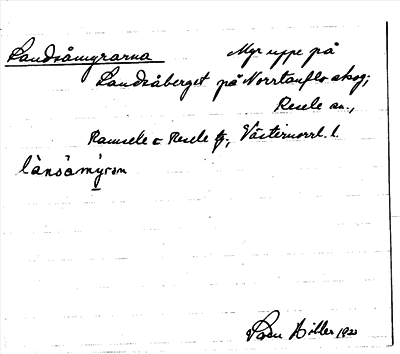 Landsåmyrarna Myr uppe på
Landsåberget på Norrtanflo skog;
Resele sn.,
Ramsele o Resele tg., Västernorrl. l.
lànsåmýrɑn
Sven Hiller 1920